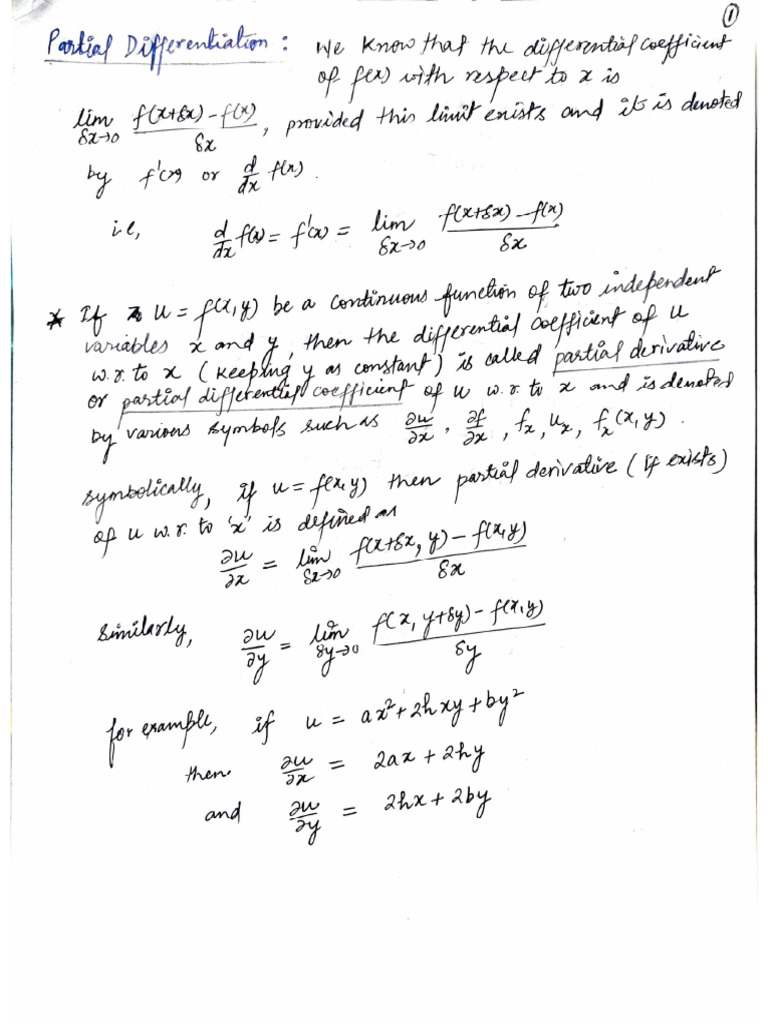 ①
Partial Differentiation : We know that the differential coefficient
of f(x) with respect to x is
lim δx→0 f(x+δx) - f(x) / δx , provided this limit exists and it is denoted
by f'(x) or d/dx f(x) .
i.e, d/dx f(x) = f'(x) = lim δx→0 f(x+δx) - f(x) / δx
* If u = f(x,y) be a continuous function of two independent
variables x and y, then the differential coefficient of u
w.r.to x (keeping y as constant) is called partial derivative
or partial differential coefficient of u w.r.to x and is denoted
by various symbols such as ∂u/∂x , ∂f/∂x , fx , ux , fx(x,y) .
symbolically, if u = f(x,y) then partial derivative (if exists)
of u w.r.to 'x' is defined as
∂u/∂x = lim δx→0 f(x+δx, y) - f(x,y) / δx
Similarly, ∂u/∂y = lim δy→0 f(x, y+δy) - f(x,y) / δy
for example, if u = ax² + 2hxy + by²
then ∂u/∂x = 2ax + 2hy
and ∂u/∂y = 2hx + 2by